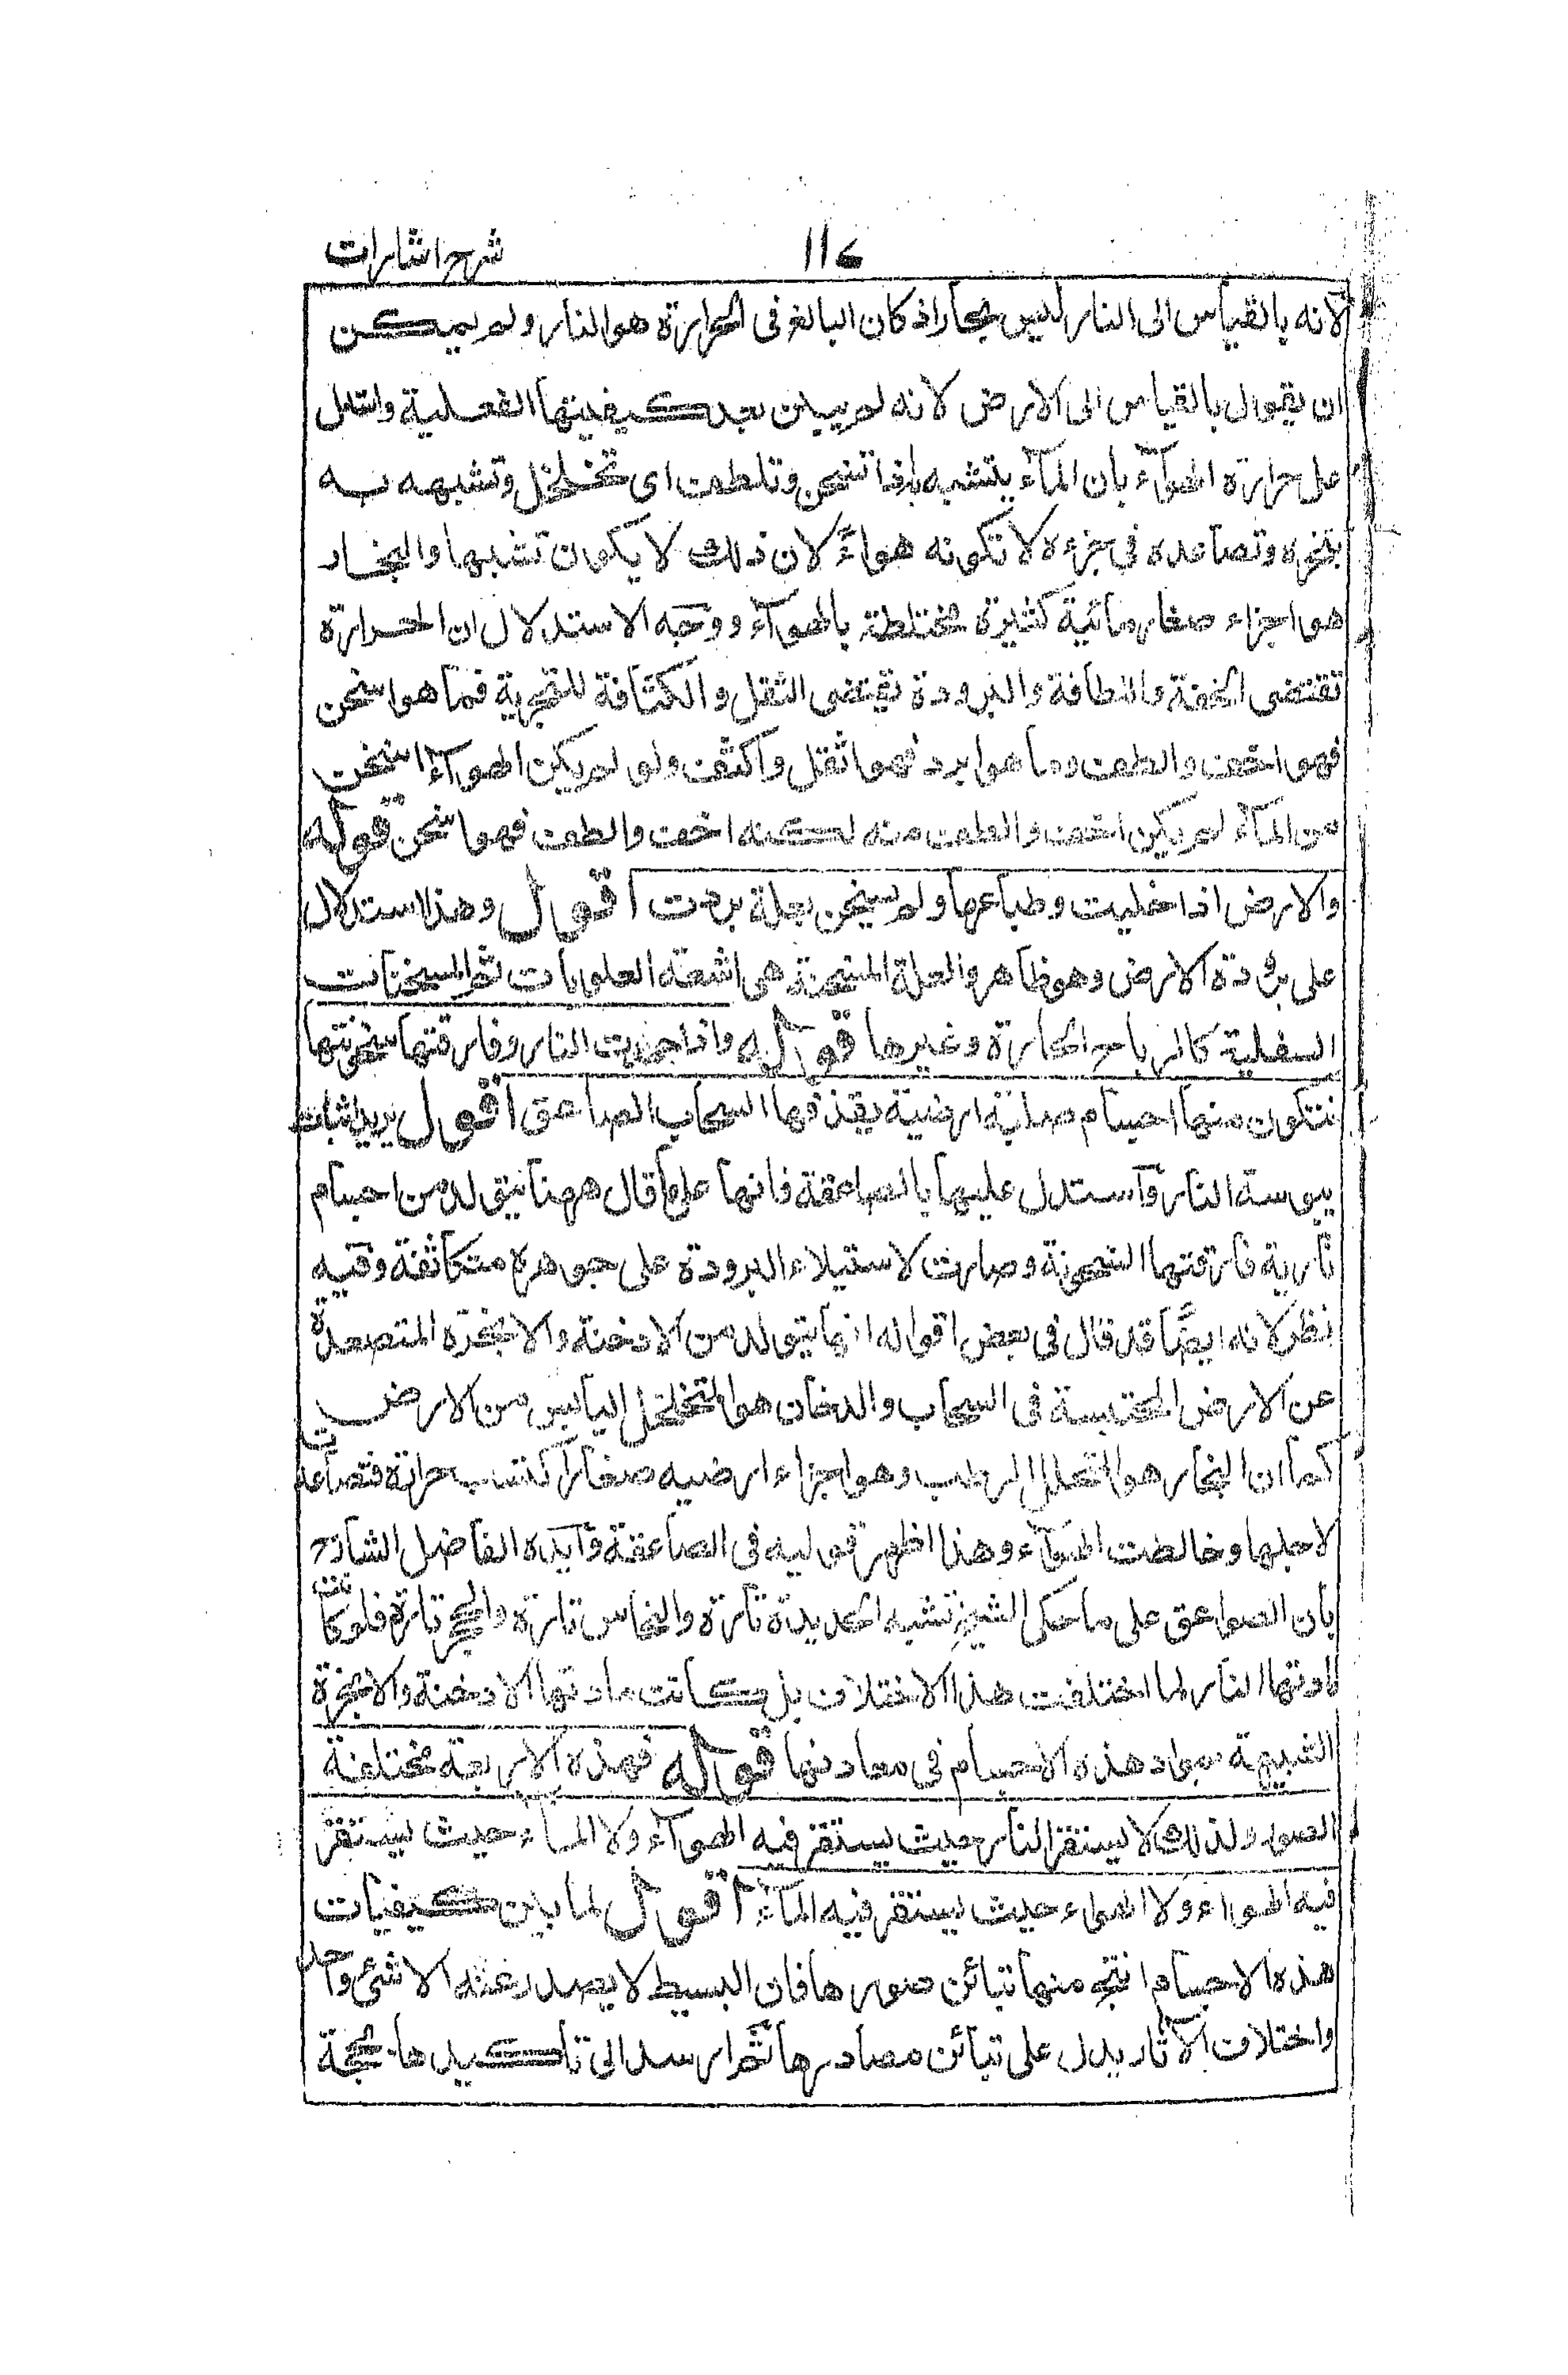 شرح اشارات
١١٤
لانه بالقياس الى النار ليس بحار اذ كان البالغ فى الحرارة هو النار ولم يمكن
ان يقول بالقياس الى الارض لانه لم يبين بعد كيفيتها الفعلية واستدل
على حرارة الهوآء بان المآء يتشبه به اذا تسخن وتلطف اى تخلخل وتشبهه به
بتبخره وتصاعده فى جزءه لا تكونه هواءً لان ذلك لا يكون تشبها والبخار
هو اجزاء صغار مائية كثيرة مختلطة بالهوآء ووجه الاستدلال ان الحرارة
تقتضى الخفة واللطافة والبرودة تقتضى الثقل والكثافة للتجربة فما هو اسخن
فهو اخف والطف وما هو ابرد فهو اثقل واكثف ولو لم يكن الهوآء اسخن
من المآء لم يكن اخف والطف منه لكنه اخف والطف فهو اسخن قوله
والارض اذا خليت وطباعها ولم تسخن بعلة بردت اقول وهذا استدلال
على برودة الارض وهو ظاهر والعلة المسخنة هى اشعة العلويات ثم المسخنات
السفلية كالرياح الحارة وغيرها قوله واذا خمدت النار وفارقتها سخونتها
تتكون منها اجسام صلبة ارضية يقذفها السحاب الصاعق اقول يريد اثبات
يبوسة النار وآستدل عليها بالصاعقة فانها على ما قال ههنا يتولد من اجسام
نارية فارقتها السخونة وصارت لاستيلاء البرودة على جوهره متكاثفة وفيه
نظر لانه ايضًا قد قال فى بعض اقواله انها يتولد من الادخنة والابخرة المتصعدة
عن الارض المحتبسة فى السحاب والدخان هو المتخلخل اليابس من الارض
كما ان البخار هو المتحلل الرطب وهو اجزاء ارضيه صغار اكتسب حرارة فتصاعدت
لاجلها وخالطت الهوآء وهذا اظهر قوليه فى الصاعقة وآيده الفاضل الشارح
بان الصواعق على ما حكى الشيخ تشبه الحديدة تارة والنحاس تارة والحجر تارة فلو كانت
مادتها النار لما اختلفت هذا الاختلاف بل كانت مادتها الادخنة والابخرة
الشبيهة بمواد هذه الاجسام فى معادنها قوله فهذه الاربعة مختلفة
الصور ولذلك لا يستقر النار حيث يستقر فيه الهوآء ولا المآء حيث يستقر
فيه الهواء ولا الهواء حيث يستقر فيه المآء اقول لما بين كيفيات
هذه الاجسام انتج منها تبائن صورها فان البسيط لا يصدر عنه الا شئ واحد
واختلاف الآثار يدل على تبائن مصادرها ثم ارسد الى تاكيدها بحجة